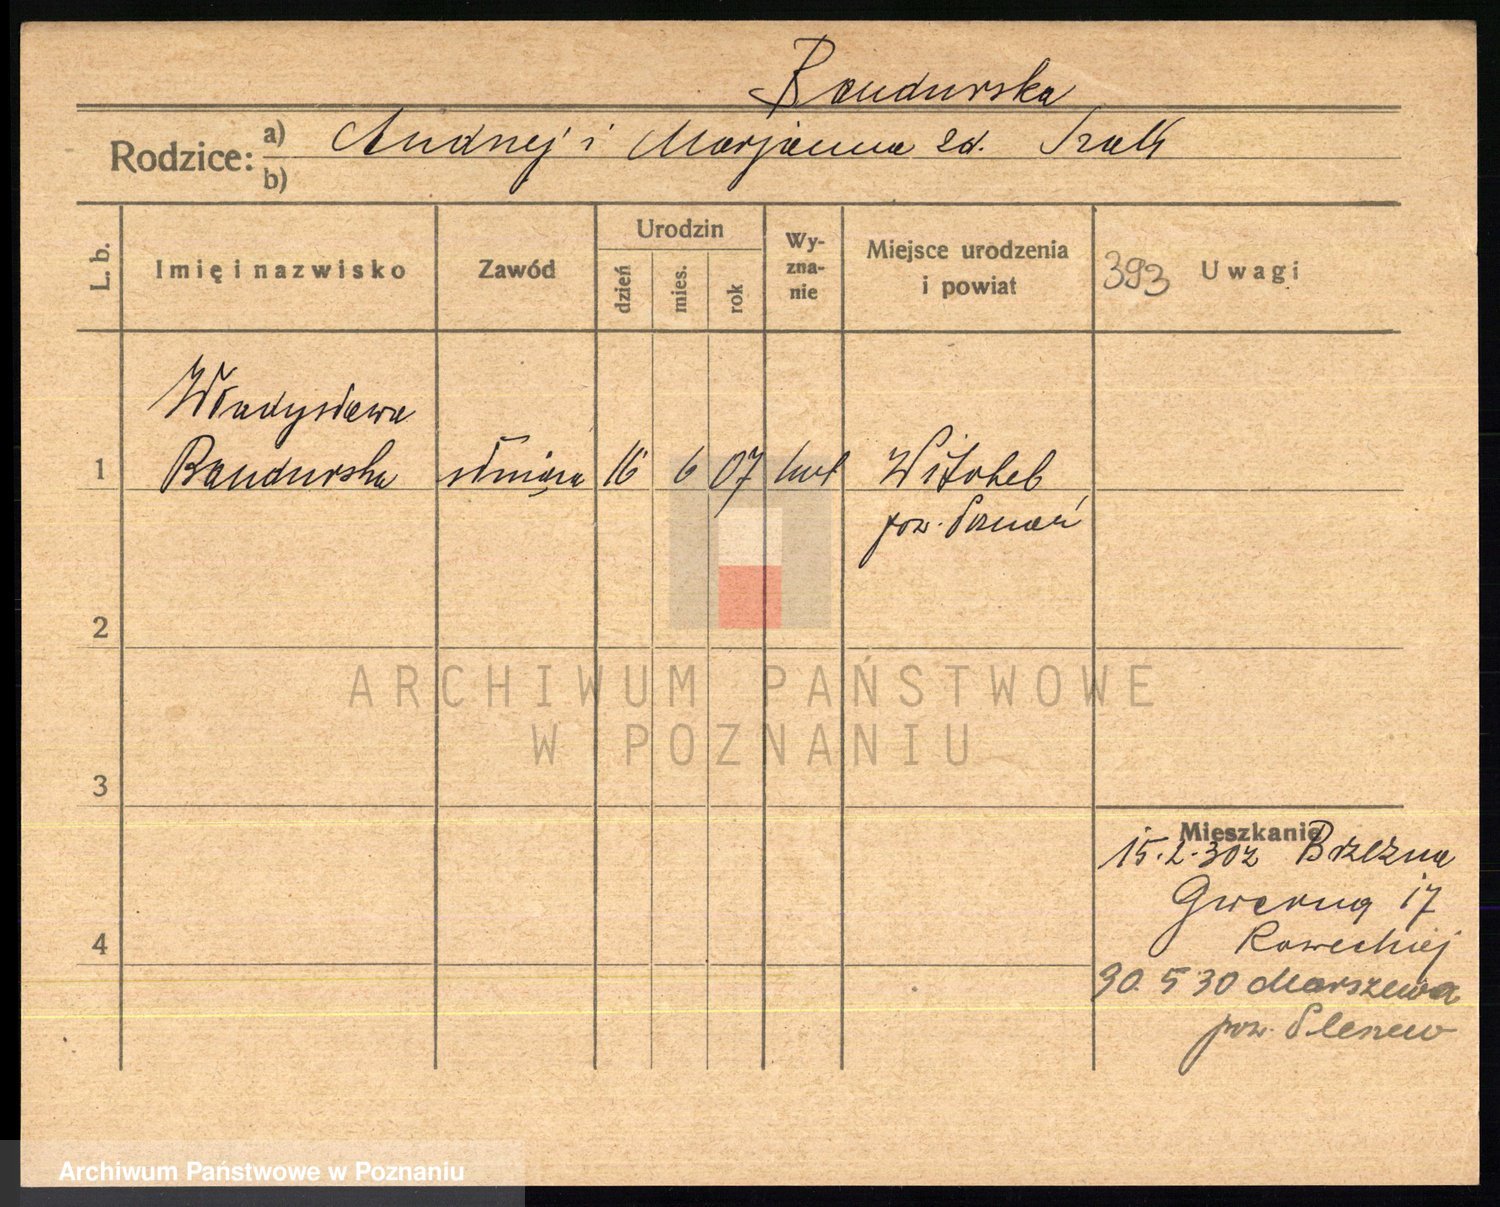 Bandurska
Rodzice: a) Andrzej i Marjanna zd. Szalk
b)
L. b.
Imię i nazwisko
Zawód
Urodzin
dzień
mies.
rok
Wy-
zna-
nie
Miejsce urodzenia
i powiat
393
Uwagi
Władysława
1 Bandurska służąca 16 6 07 kat Witobel
pow. Poznań
2
ARCHIWUM PAŃSTWOWE
W POZNANIU
3
Mieszkanie
15.2.30 z Brzezna
30 5 30 Marszewa
4
pow. Pleszew
Archiwum Państwowe w Poznaniu